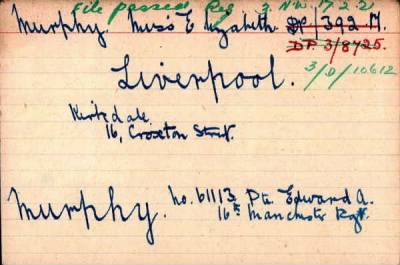 File passed Reg 3. N.W. 17.2.2
Murphy, Miss Elizabeth. DP/392 M.
DP 3/8725.
Liverpool. 3/D/10612
Kirkdale.
16, Croxton Street.
Murphy. No. 61113 Pte. Edward A.
16th Manchester Regt.